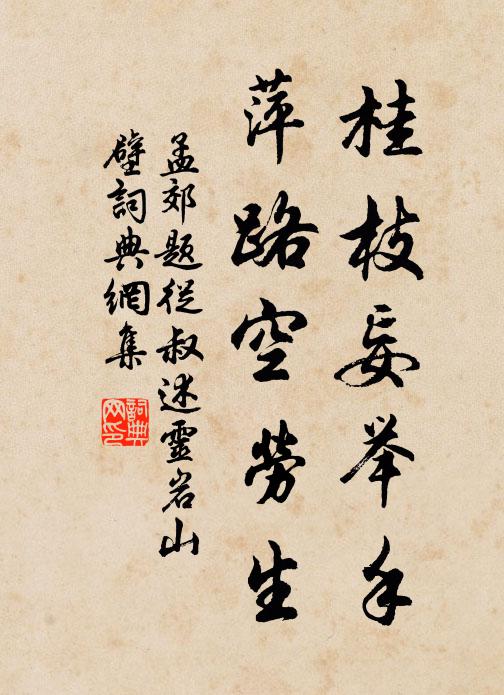 桂枝妄举手
萍路空勞生
孟郊題從叔述靈岩山
壁詞典網集
詞典
网印